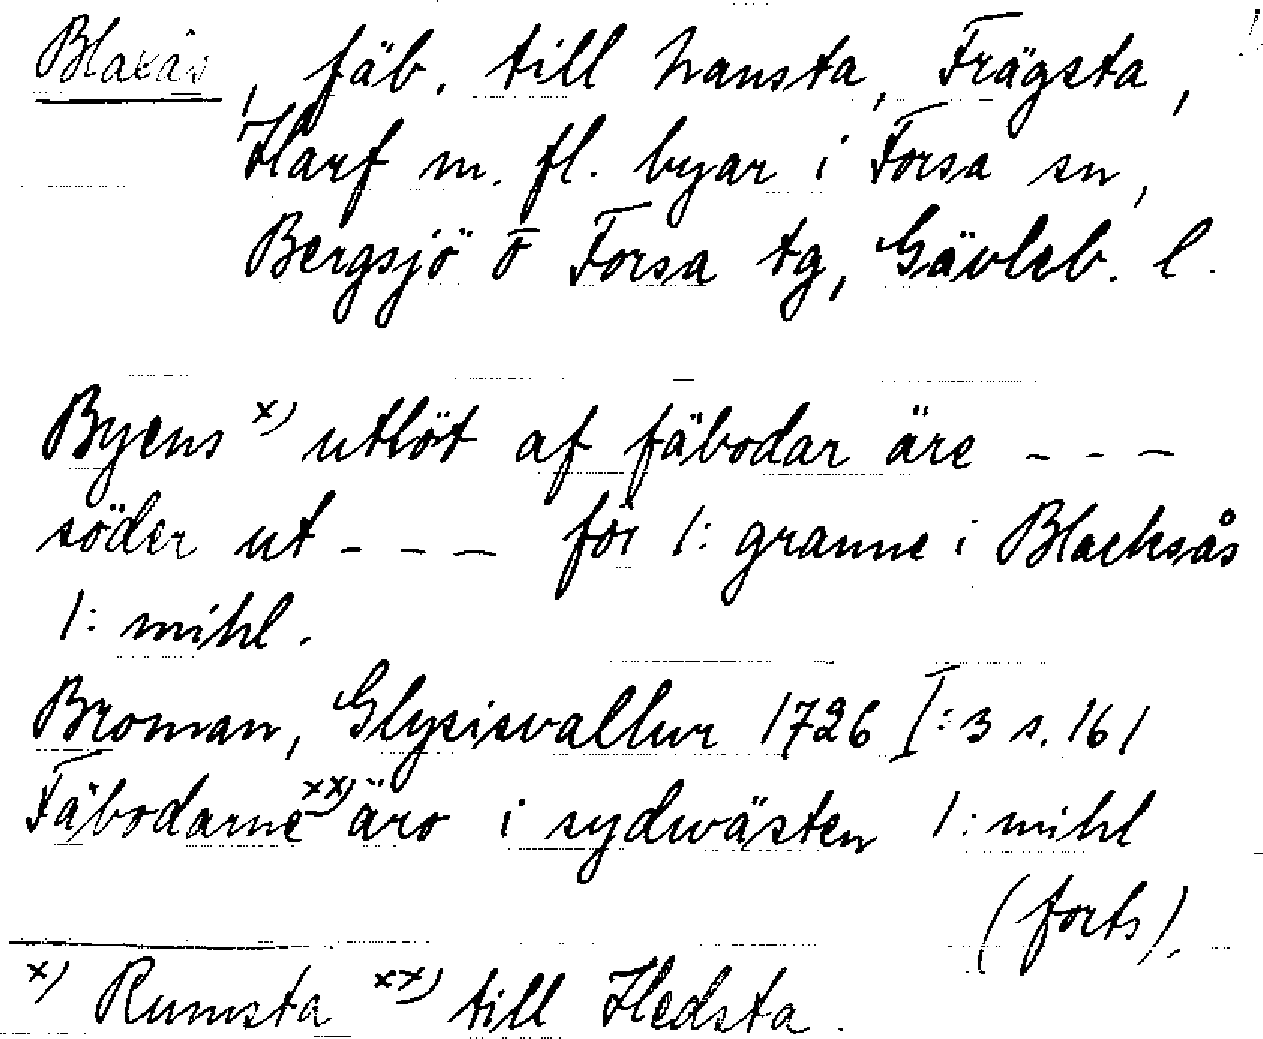 Blaxås, fäb. till Hamsta, Frägsta,
Harf m. fl. byar i Forsa sn,
Bergsjö o Forsa tg, Gävleb. l.
Byens x) utlöt af fäbodar äre - - -
söder ut - - - för 1: granne i Blacksås
1: mihl.
Broman, Glysisvallur 1726 I:3 s. 161
Fäbodarne xx) äro i sydwästen 1: mihl
(forts).
x) Rumsta xx) till Hedsta.